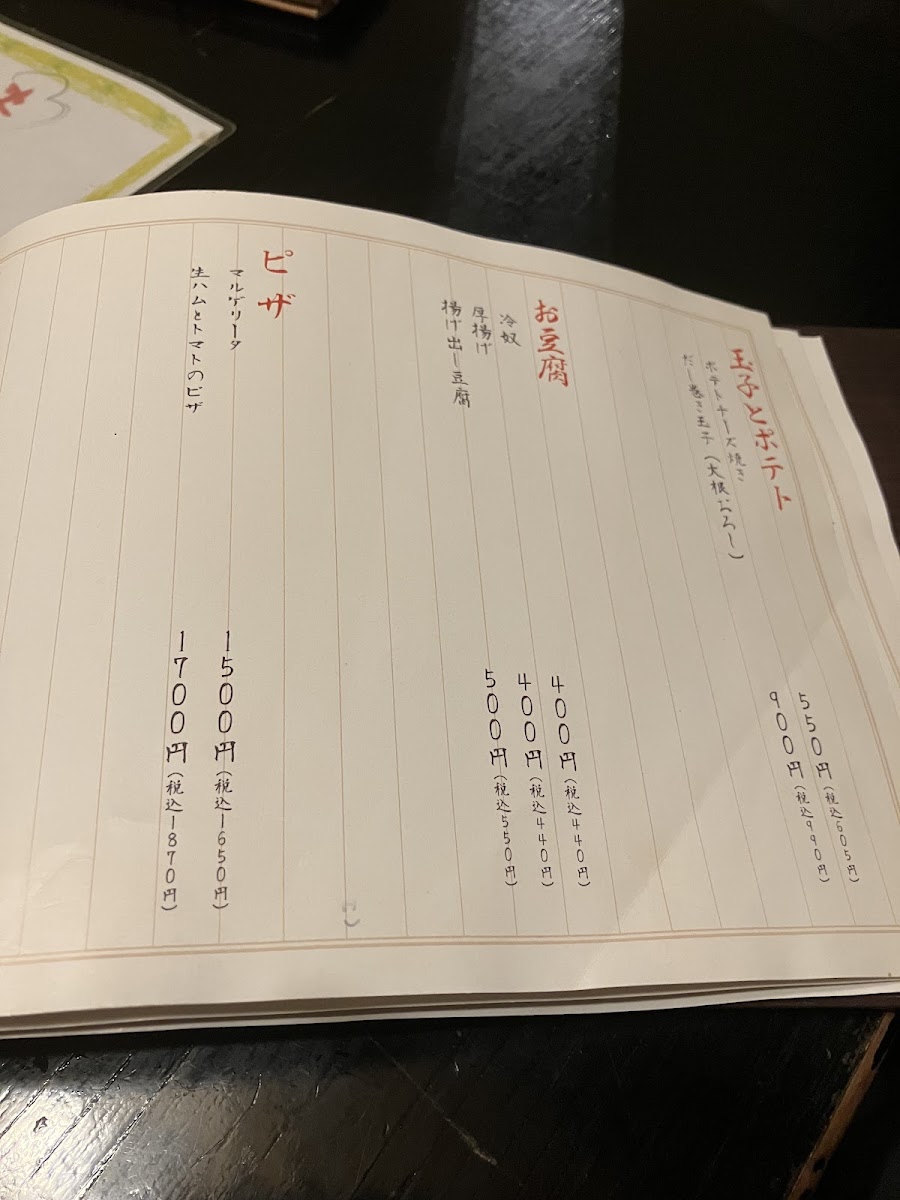 玉子とポテト
ポテトチーズ焼き 550円(税込605円)
だし巻き玉子(大根おろし) 900円(税込990円)
お豆腐
冷奴 400円(税込440円)
厚揚げ 400円(税込440円)
揚げ出し豆腐 500円(税込550円)
円)
ピザ
マルゲリータ 1500円(税込1650円)
生ハムとトマトのピザ 1700円(税込1870円)